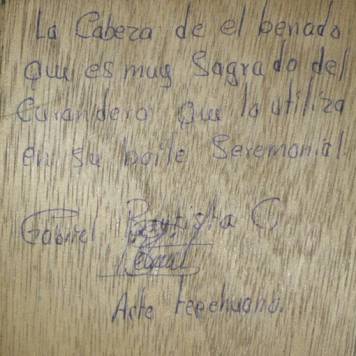 La Cabeza de el benado
que es muy Sagrado del
Curandero que lo utiliza
en su baile Seremonial
Gabriel Bautista C
Arte tepehuano.